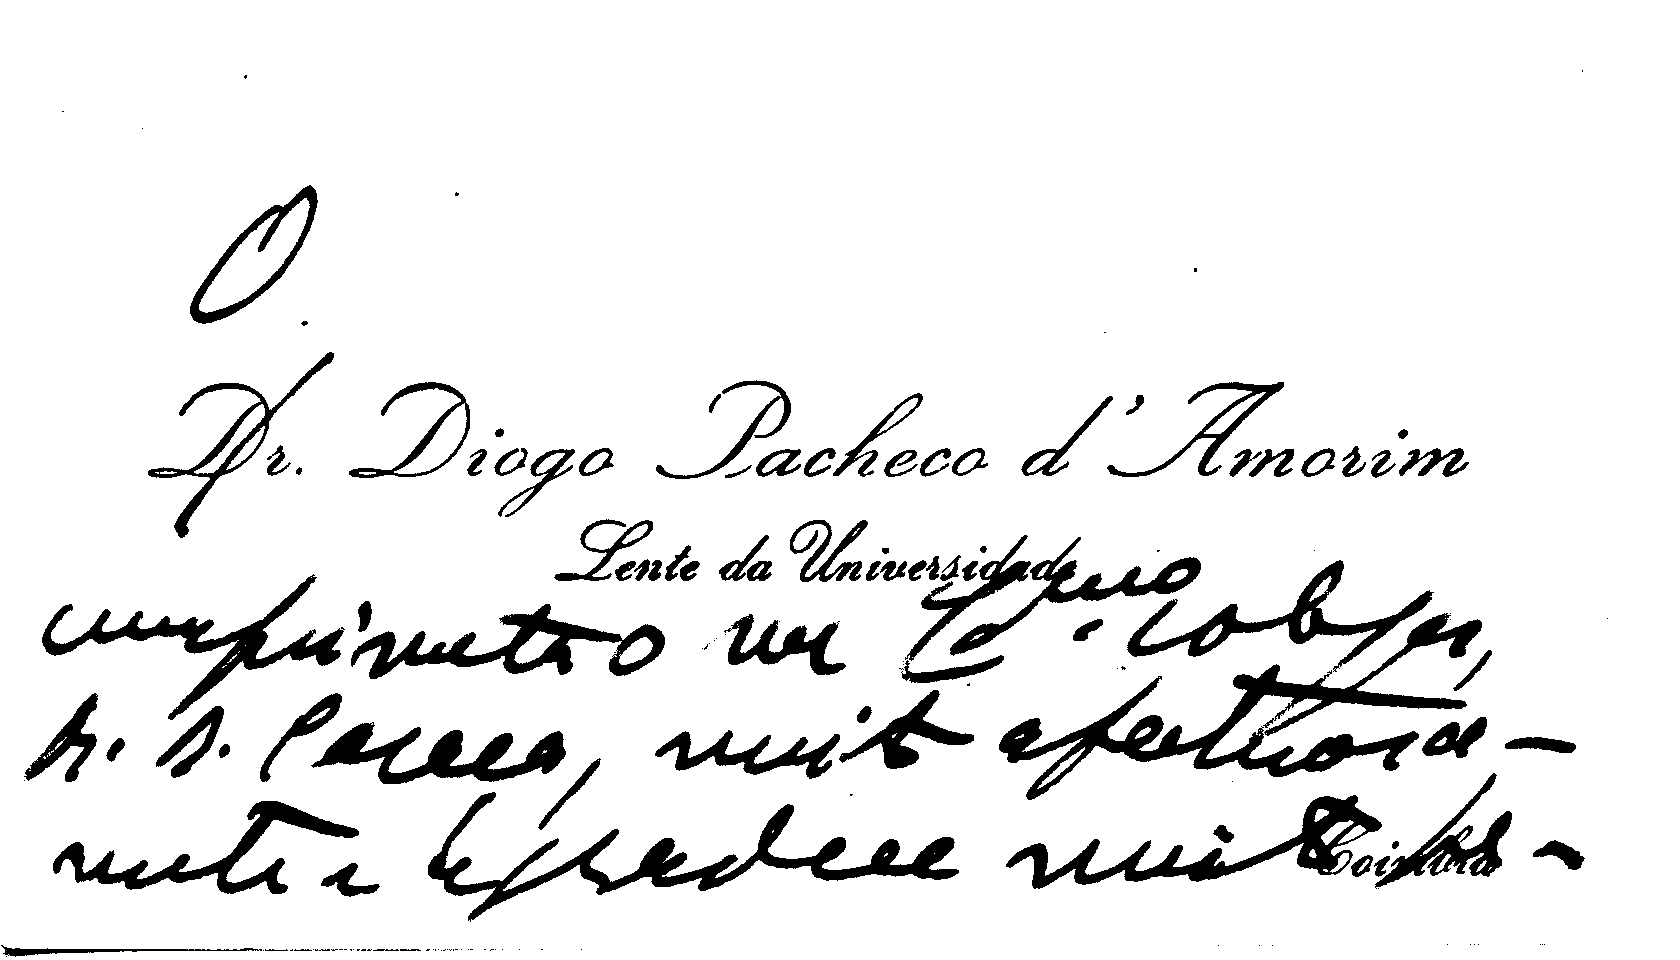 O
Dr. Diogo Pacheco d'Amorim
Lente da Universidade
cumprimenta o seu Exmo. colega,
Dr. S. muito afectuosa-
mente e agradece muito
Coimbra